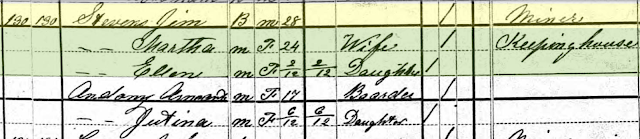 130 130 Stevens Jim B m 28 / Miner
" " Martha m F 24 Wife / Keeping house
" " Ellen m F 2/12 2/12 Daughter /
Andony Amanda m F 17 Boarder /
" " Jutina m F 6/12 6/12 Daughter /